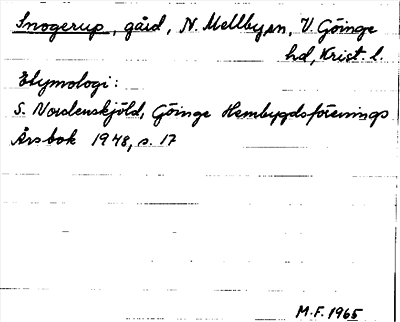 Snogerup, gård, N. Mellby sn, V. Göinge
hd, Krist. l.
Etymologi:
S. Nordenskjöld, Göinge Hembygdsförenings
Årsbok 1948, s. 17
M.F. 1965